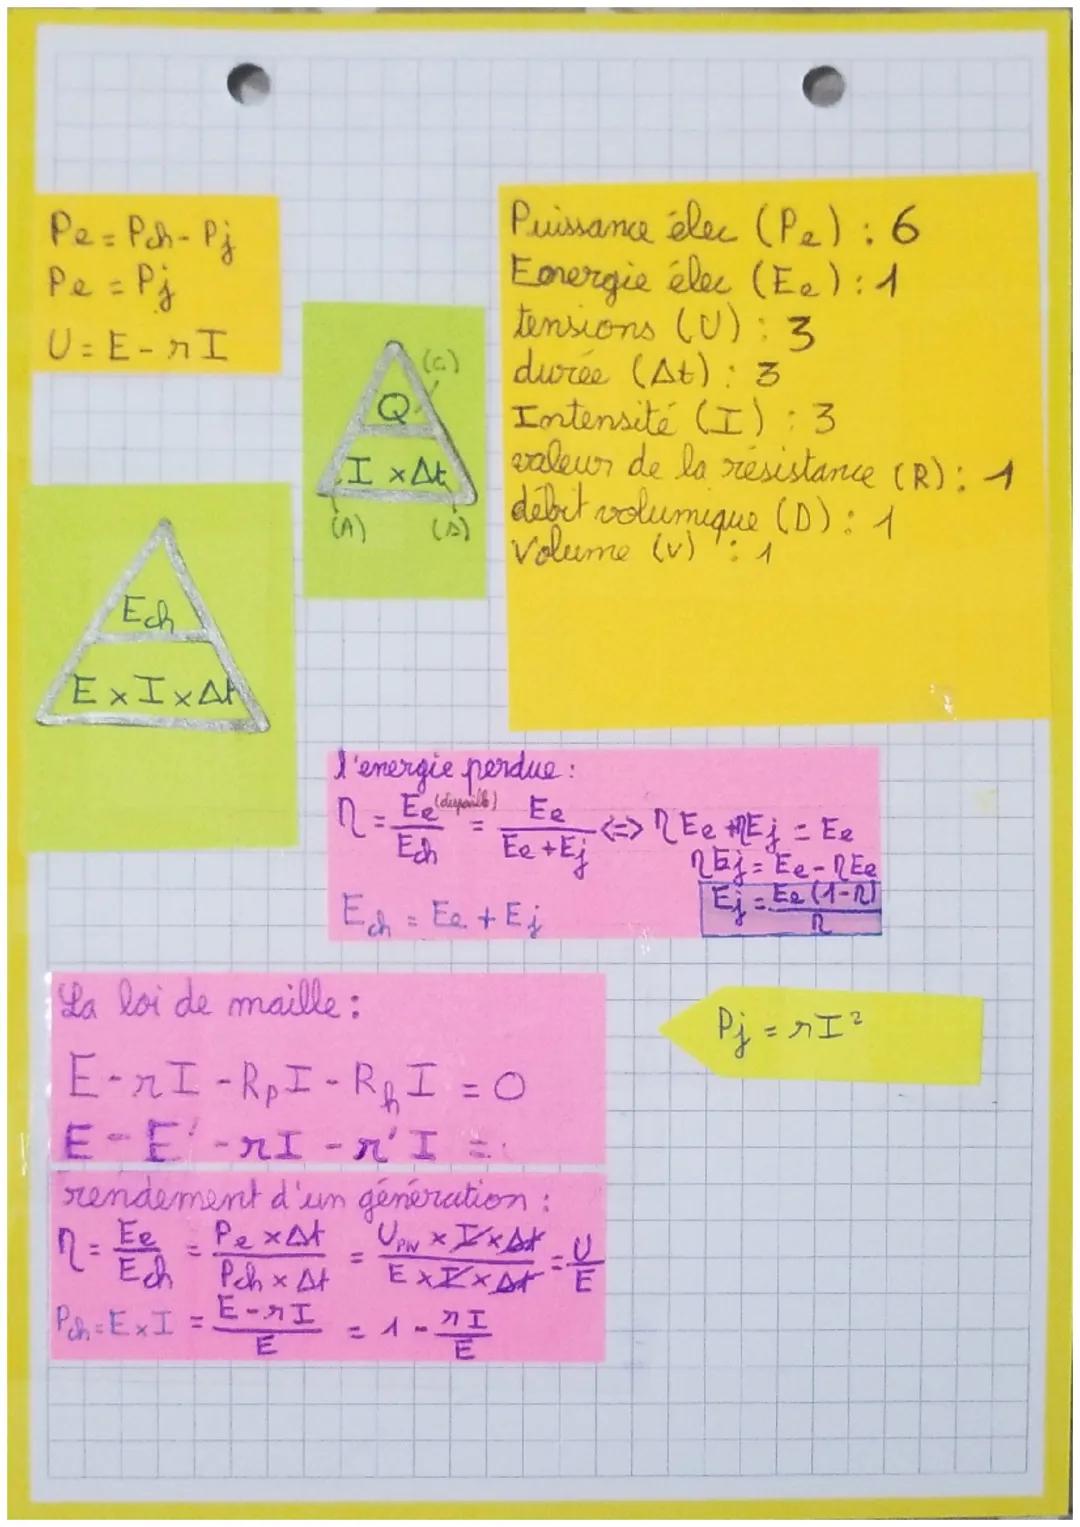 Pe = Pch - Pj
Pe = Pj
U = E - rI
Puissance élec (Pe) : 6
Eonergie élec (Ee) : 1
tensions (U) : 3
durée (Δt) : 3
Intensité (I) : 3
valeur de la résistance (R) : 1
débit volumique (D) : 1
Volume (v) : 1
(C)
Q
I × Δt
(A) (s)
Ech
E × I × Δt
l'energie perdue :
η = Ee / Ech = Ee / (Ee + Ej) <=> ηEe + ηEj = Ee
ηEj = Ee - ηEe
Ech = Ee + Ej
Ej = Ee (1-η) / η
La loi de maille :
E - rI - RpI - RhI = 0
E - E' - rI - r'I =
Pj = rI²
rendement d'un génération :
η = Ee / Ech = Pe × Δt / Pch × Δt = UPN × I × Δt / E × I × Δt = U / E
Pch = E × I = E - rI / E = 1 - rI / E